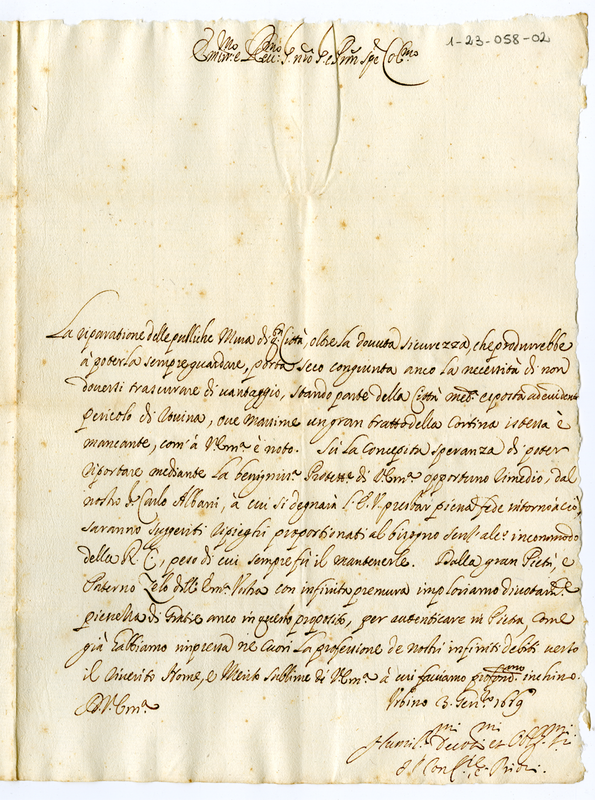 1-23-058-02
Emin:mo e Rev:mo S.r nro P.ne Col:mo
La riparatione delle publiche Mura di q.ta Città, oltre la dovuta sicurezza, che produrrebbe
à poterla sempre guardare, porta seco congiunta anco la necessità di non
doversi trascurare di vantaggio, stando parte della Città med.a esposta ad evidente
pericolo di rovina, ove massime un gran tratto della Cortina istessa è
mancante, com'à V. Em.a è noto. Sù la concepita speranza di poter
riportare mediante la benigniss.a Protett.e di V. Em.a opportuno rimedio, dal
nostro Carlo Albani, à cui si degnarà l'E.V. prestar piena fede intorno à ciò,
saranno suggeriti ripieghi proportionati al bisogno senz'alc.o incommodo
della R. C., peso di cui sempre fù il mantenerle. Dalla gran Pietà, e
Paterno Zelo dell' Em.a Vostra con infinita premura imploriamo divotam.te
pienezza di Gratie anco in questo proposito, per autenticare in Pietra come
già habbiamo impressa ne' cuori la professione de nostri infiniti debiti verso
il riverito Nome, e Merito sublime di V. Em.a à cui facciamo profond.mo inchino.
D. V. Em.a Urbino 3. Gen.ro 1689
Humil.mi Devot.mi et Obl.mi